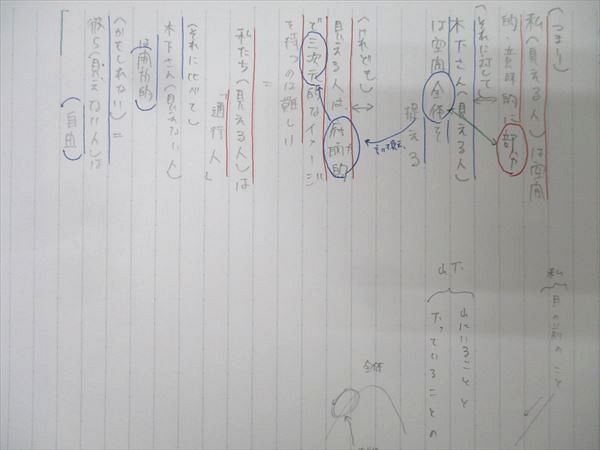 (つまり)
私(見える人)は空間
的、意味的に部分
(それに対して)
木下さん(見える人)
は空間全体を
捉える
(けれども)
見える人は
で三次元的なイメージ
を持つのは難しい
=
私たち(見える人)は
「通行人」
(それに比べて
木下さん(見えない人)
は開放的
(かもしれない)=
彼ら(見えない人)は
自由
私
目の前のこと
木下
山にいることと
下っていることの
全体